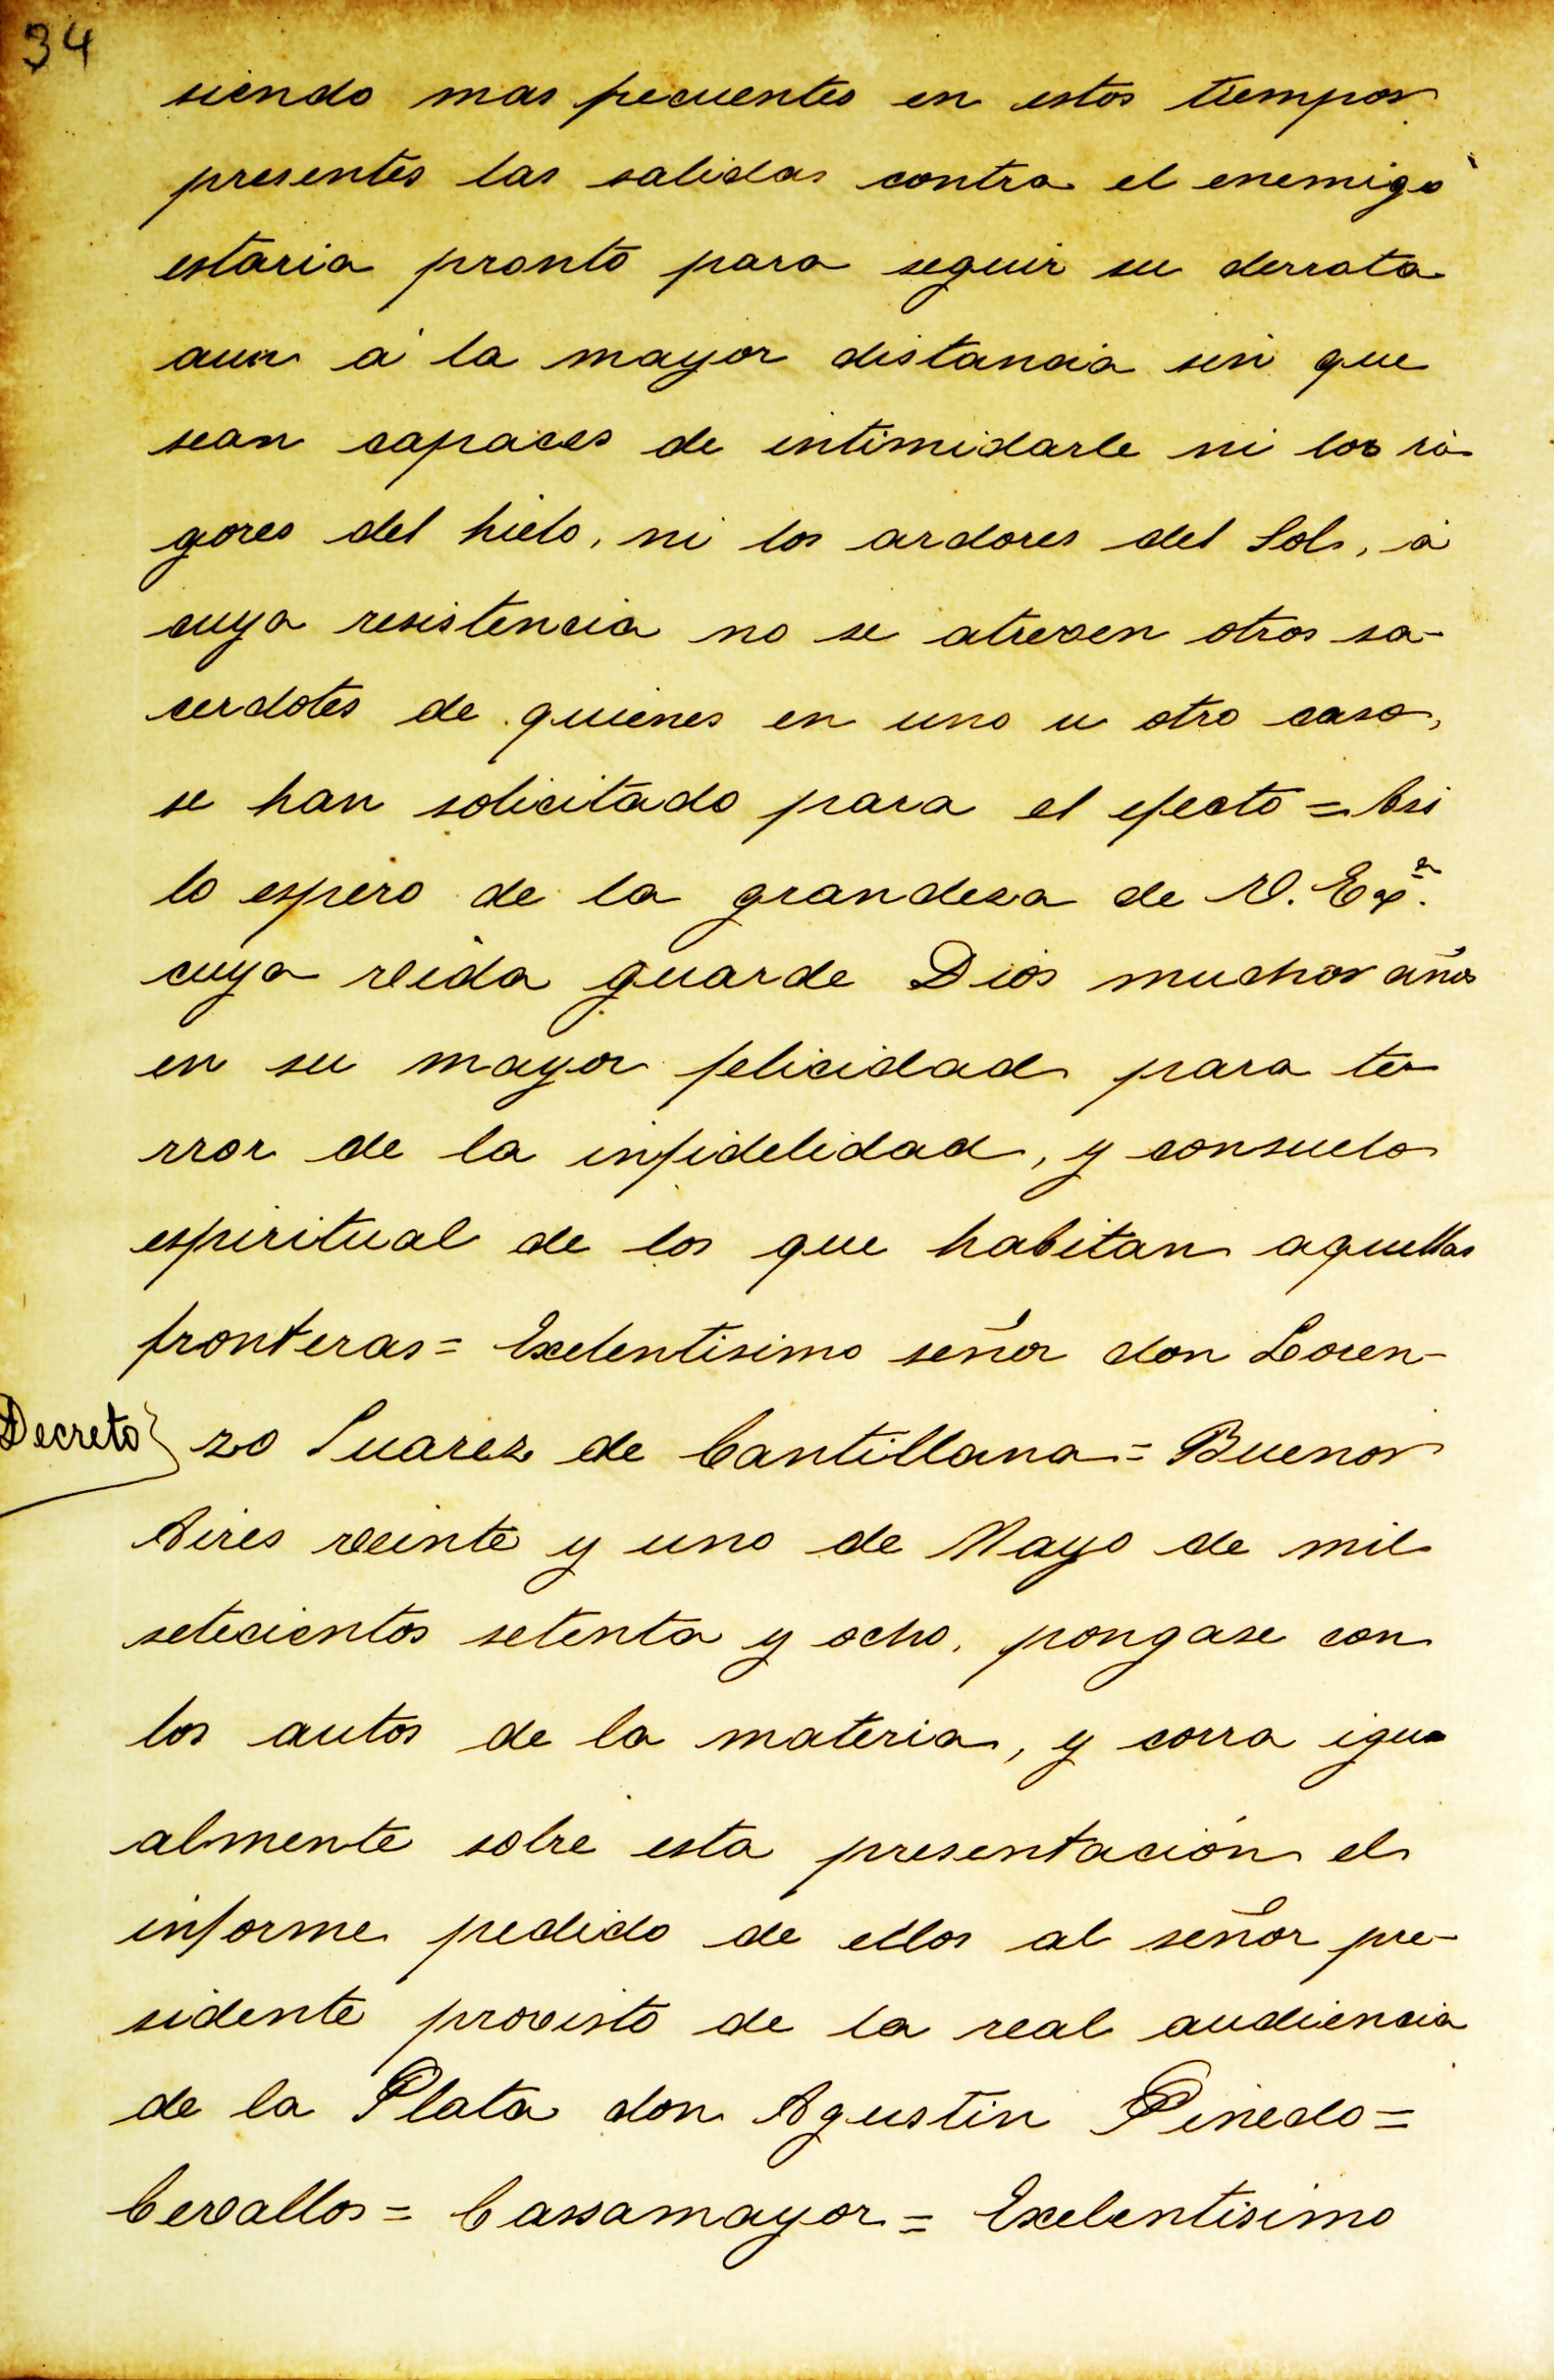 34
siendo mas frecuentes en estos tiempos
presentes las salidas contra el enemigo
estaria pronto para seguir su derrota
aun á la mayor distancia sin que
sean capaces de intimidarle ni los ri-
gores del hielo, ni los ardores del Sol, á
cuya resistencia no se atreven otros sa-
cerdotes de quienes en uno u otro caso,
se han solicitado para el efecto = Asi
lo espero de la grandeza de V. Exª.
cuya vida guarde Dios muchos años
en su mayor felicidad para te-
rror de la infidelidad, y consuelo
espiritual de los que habitan aquellas
fronteras = Exelentisimo señor don Loren-
Decreto} zo Suarez de Cantillana = Buenos
Aires veinte y uno de Mayo de mil
setecientos setenta y ocho, pongase con
los autos de la materia, y corra igu-
almente sobre esta presentación el
informe pedido de ellos al señor pre-
sidente provisto de la real audiencia
de la Plata don Agustin Pinedo =
Cevallos = Cassamayor = Exelentisimo